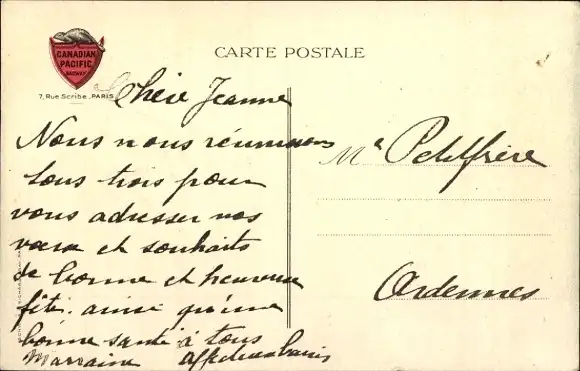 CARTE POSTALE
CANADIAN
PACIFIC
RAILWAY
7, Rue Scribe, PARIS
Chère Jeanne
Nous nous réunissons
tous trois pour
vous adresser nos
vœux et souhaits
de bonne et heureuse
fête. ainsi qu'une
bonne santé à tous
Marraine
Mle Petitfrère
Ardennes